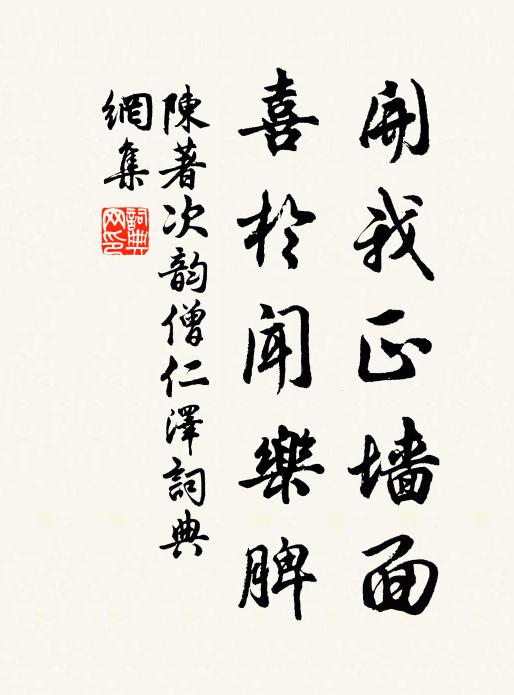 開我正墻面
喜於闻樂脾
陳著次韵僧仁澤詞典
網集
詞典网印